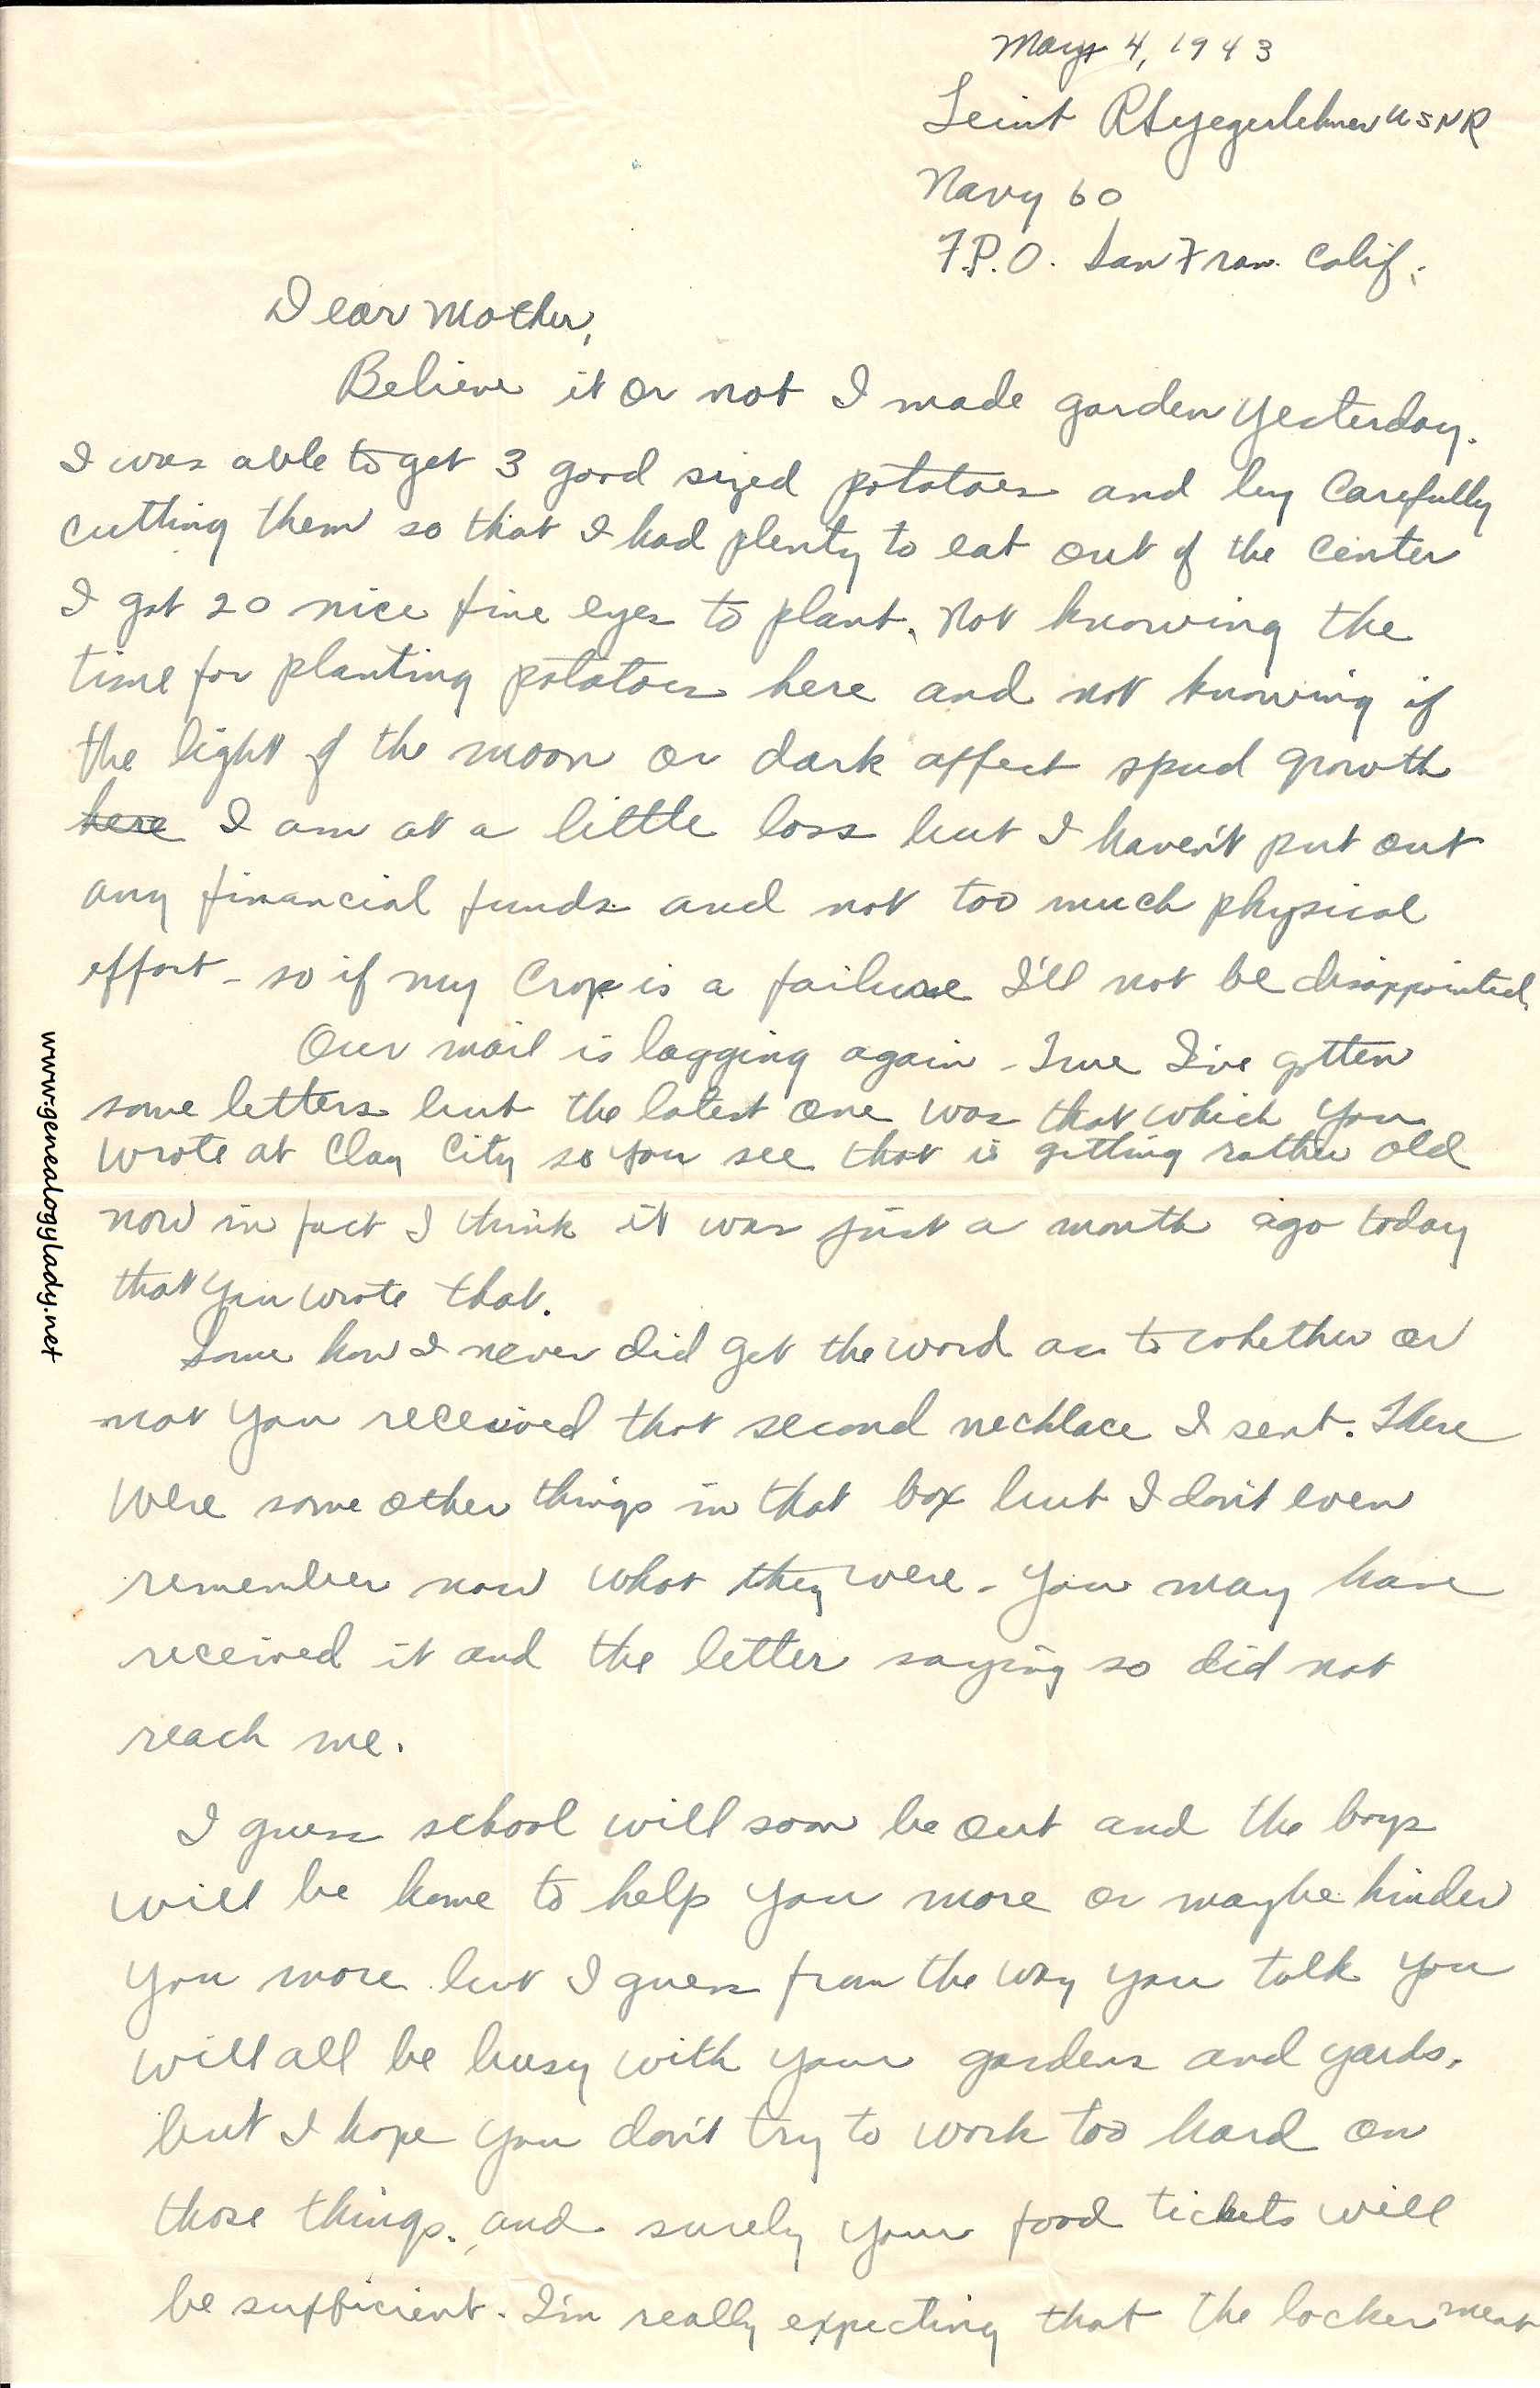 May 4, 1943
Leiut RSYegerlehner USNR
Navy 60
F.P.O. San Fran. Calif.
Dear Mother,
Believe it or not I made garden yesterday.
I was able to get 3 good sized potatoes and by carefully
cutting them so that I had plenty to eat out of the center
I got 20 nice fine eyes to plant. Not knowing the
time for planting potatoes here and not knowing if
the light of the moon or dark affect spud growth
here I am at a little loss but I haven't put out
any financial funds and not too much physical
effort - so if my crop is a failure I'll not be disappointed.
Our mail is lagging again - True I've gotten
some letters but the latest one was that which you
wrote at Clay City so you see that is getting rather old
now in fact I think it was just a month ago today
that you wrote that.
Some how I never did get the word as to whether or
not you received that second necklace I sent. There
were some other things in that box but I don't even
remember now what they were - You may have
received it and the letter saying so did not
reach me.
I guess school will soon be out and the boys
will be home to help you more or maybe hinder
you more but I guess from the way you talk you
will all be busy with your gardens and yards,
but I hope you don't try to work too hard on
those things. and surely your food tickets will
be sufficient. I'm really expecting that the locker meat
www.genealogylady.net